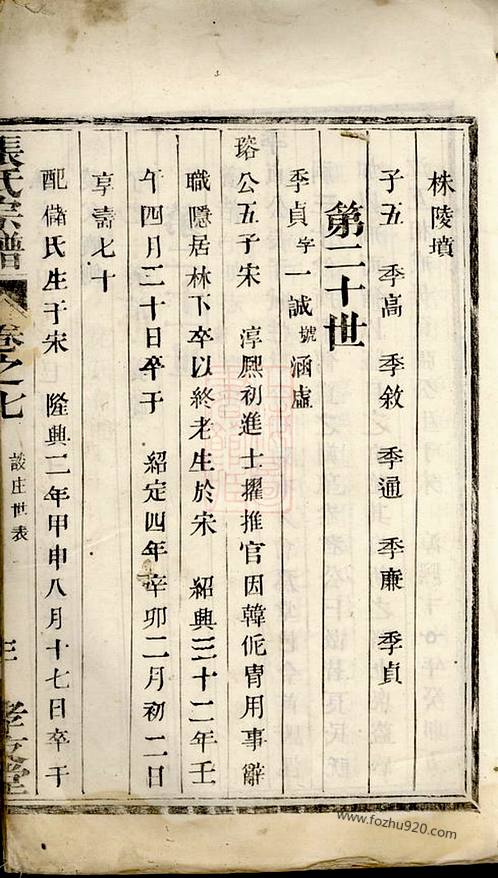 株陵墳
子五 季高 季敘 季通 季亷 季貞
第二十世
季貞字一誠號涵虛
瑢公五子宋 淳熙初進士擢推官因韓侂胄用事辭
職隱居林下卒以終老生於宋 紹興三十二年壬
午四月二十日卒于 紹定四年辛卯二月初二日
享壽七十
配儲氏生于宋 隆興二年甲申八月十七日卒于
張氏宗譜 卷之七 談庄世表 三
www.fozhu920.com